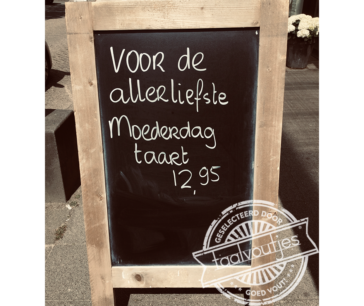 VOOR de
allerliefste
Moederdag
taart
12,95
GESELECTEERD DOOR
taalvoutjes
GOED VOUT!